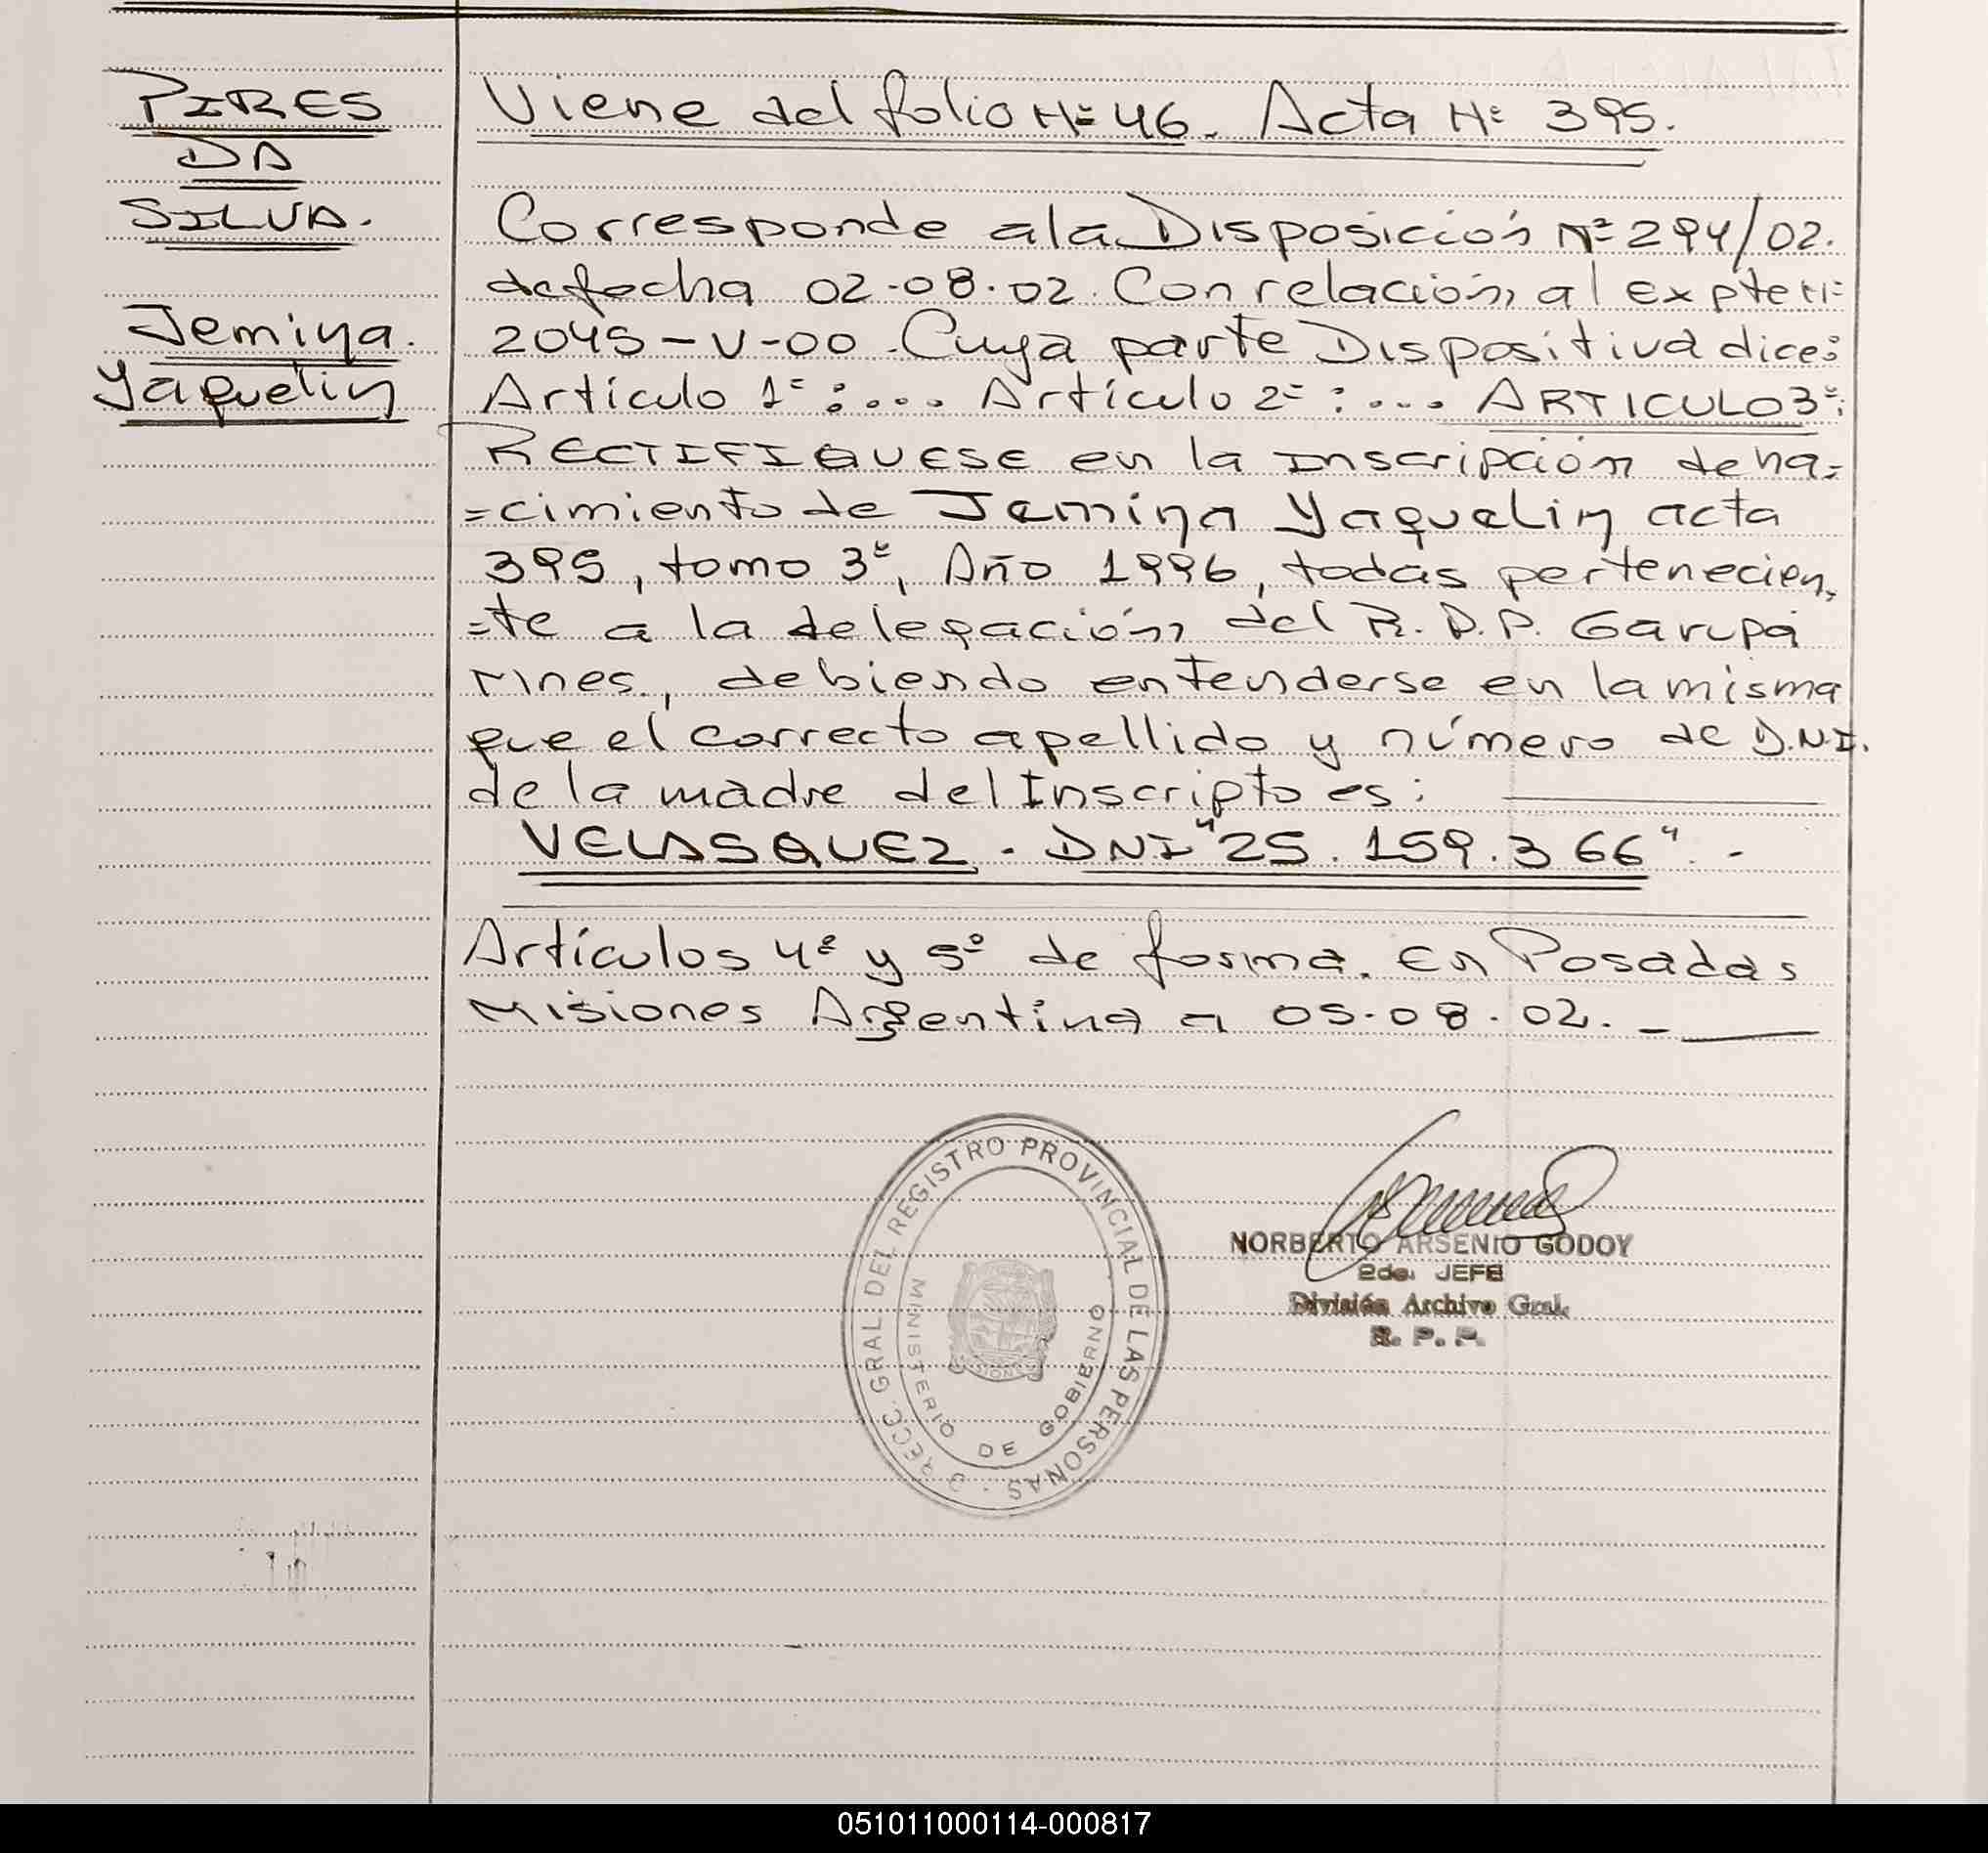 PIRES
DA
SILVA.
Jemina.
Yaquelin
Viene del folio Nº 46. Acta Nº 395.
Corresponde a la Disposición Nº 294/02.
de fecha 02-08-02. Con relación, al expte Nº
2045-V-00. Cuya parte Dispositiva dice:
Artículo 1º:... Artículo 2º:... ARTICULO 3º:
RECTIFIQUESE en la Inscripción de na=
=cimiento de Jemina Yaquelin acta
395, tomo 3º, Año 1996, todas pertenecien,
=te a la delegación del R.D.P. Garupá
Mnes., debiendo entenderse en la misma
que el correcto apellido y número de D.N.I.
de la madre del Inscripto es:
VELASQUEZ. DNI "25.159.366". -
Artículos 4º y 5º de forma. En Posadas
Misiones Argentina a 05-08-02. -
DIRECC. GRAL. DEL REGISTRO PROVINCIAL DE LAS PERSONAS.
MINISTERIO DE GOBIERNO
NORBERTO ARSENIO GODOY
2do. JEFE
División Archivo Gral.
R. P. P.
051011000114-000817